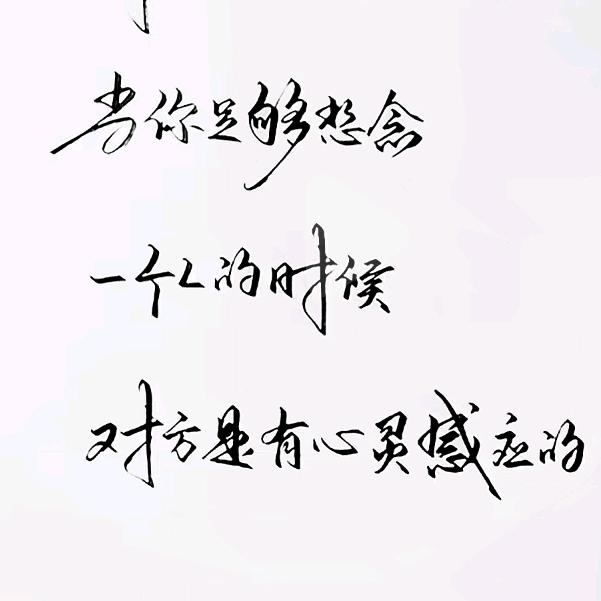 当你足够想念
一个人的时候
对方是有心灵感应的